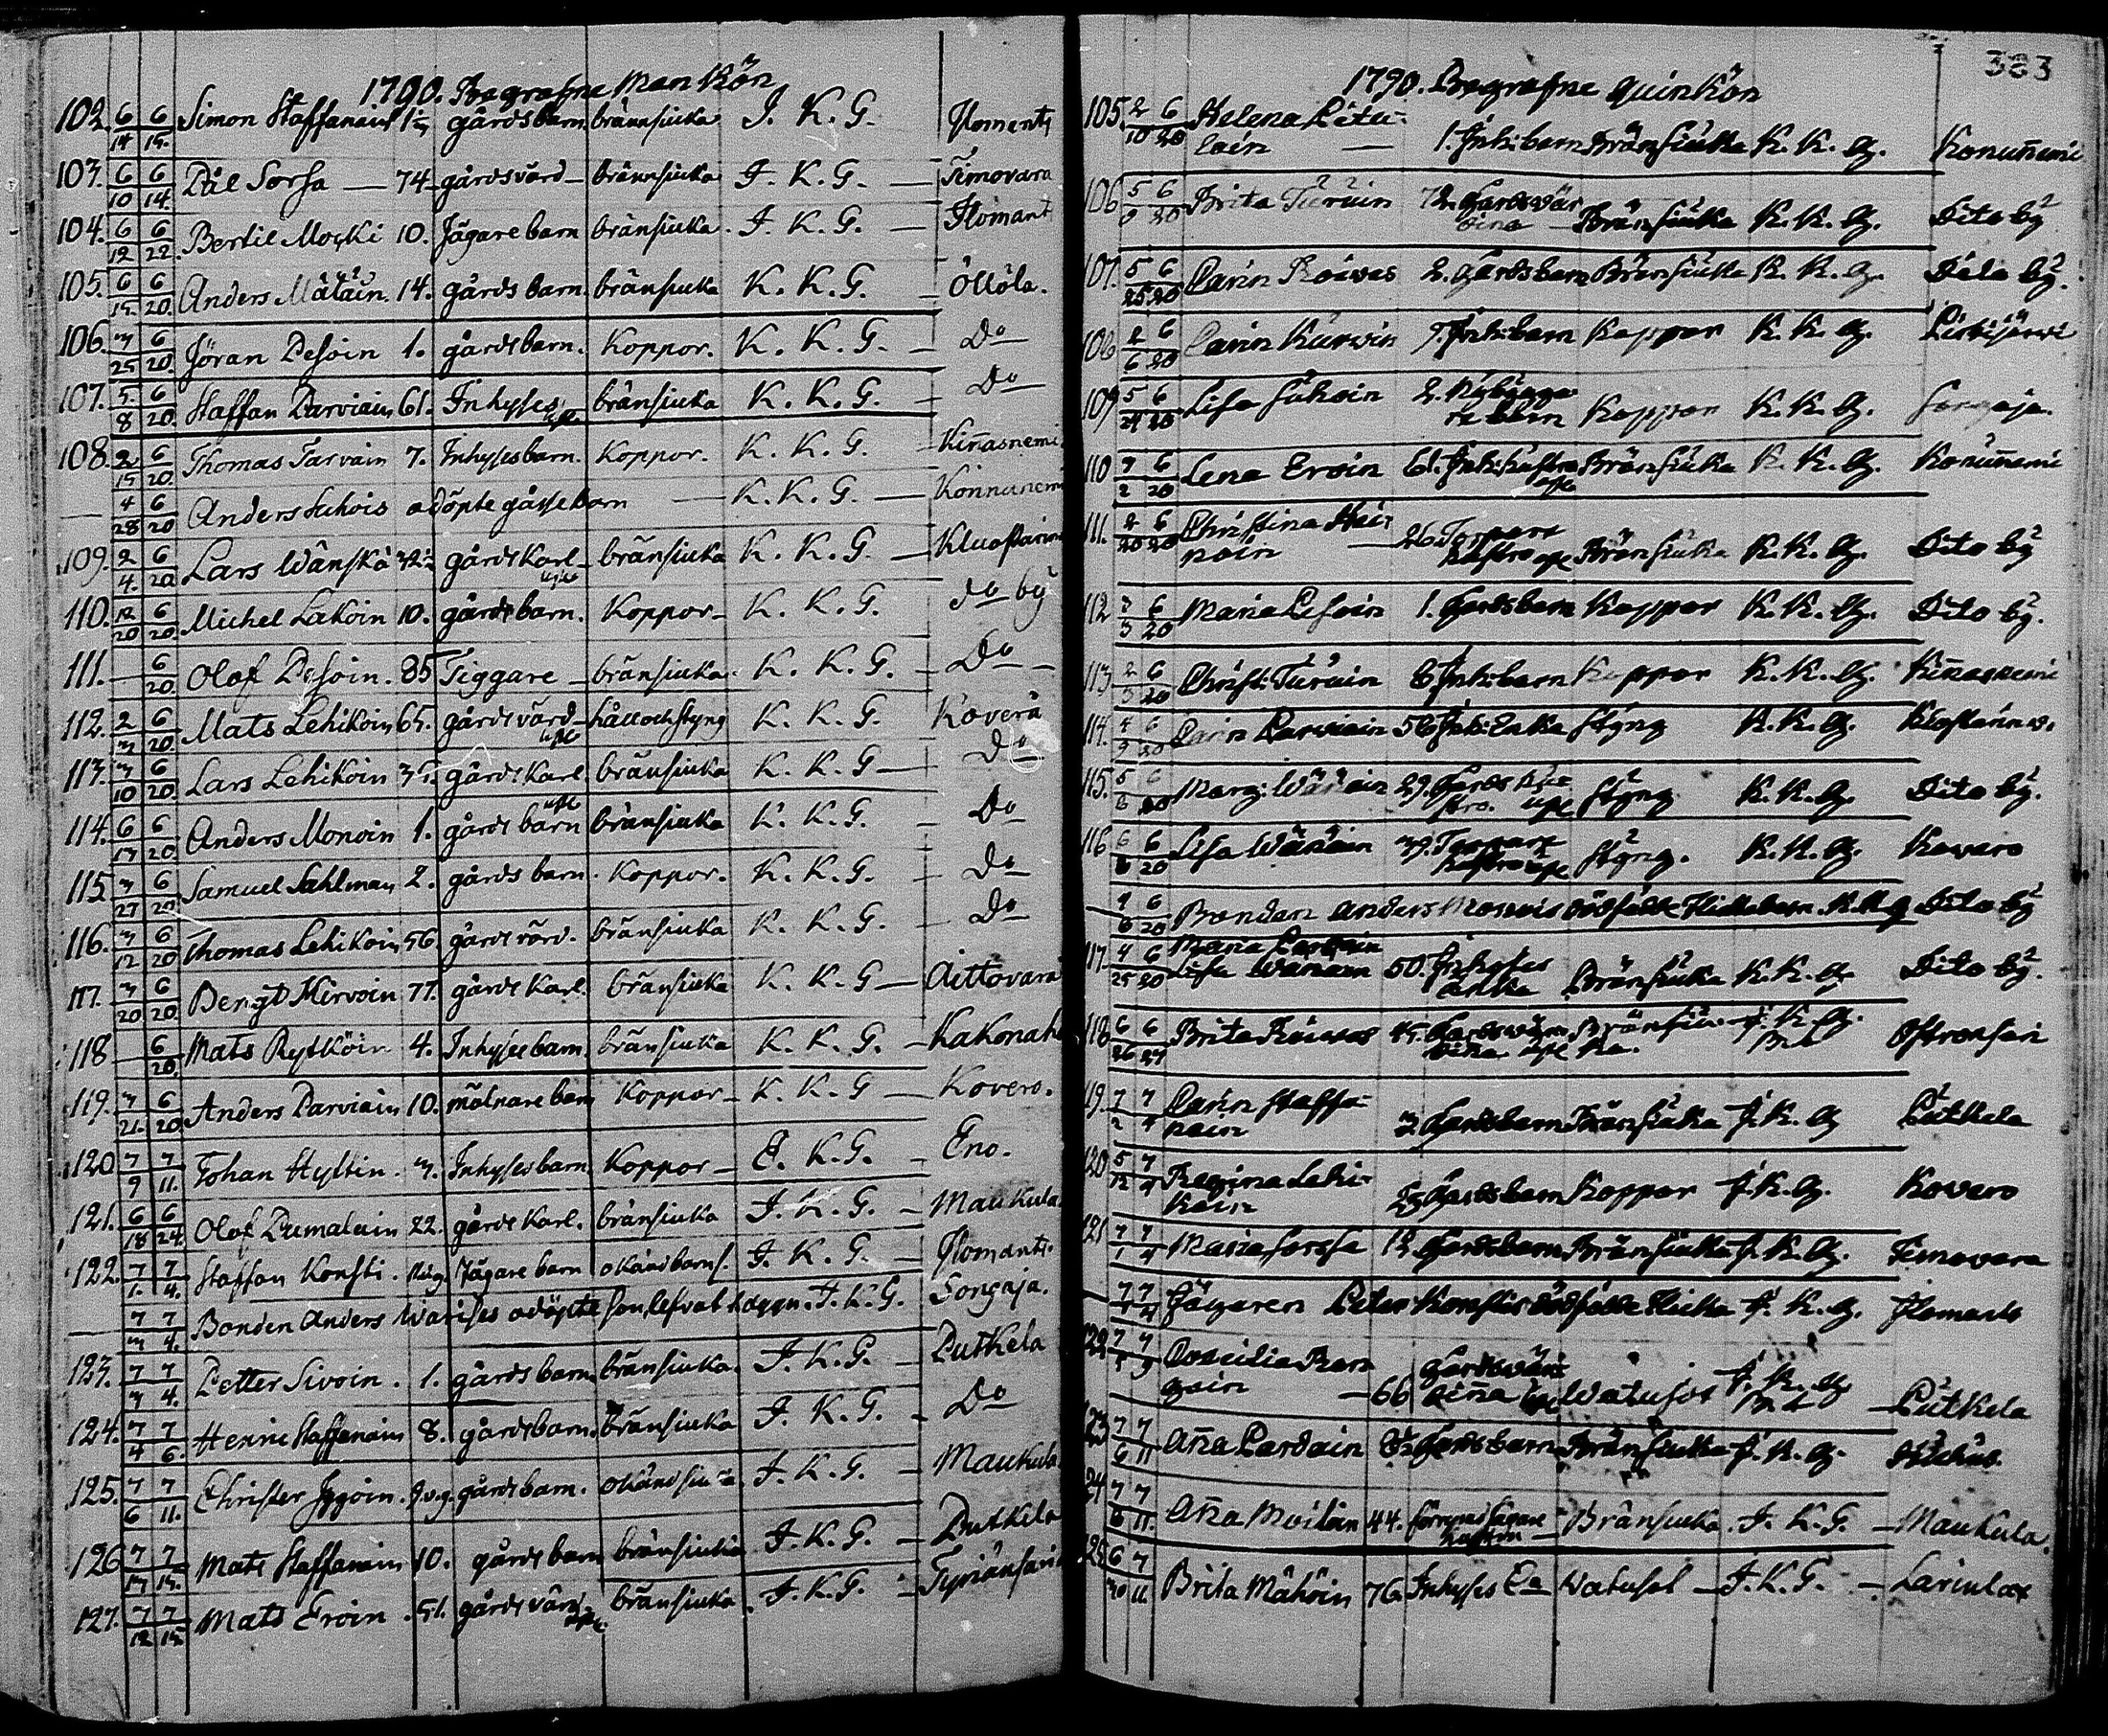 1790. Begrafne Man Kön
102. 6/14 6/15. Simon Staffanain gårdsbarn bränsiuka I. K. G. Ilomants
103. 6/10 6/14. Pål Sorsa — 74 gårdsvärd bränsiuka I. K. G. — Timovara
104. 6/12 6/22. Bertil Mosski 10. Jägare barn bränsiuka I. K. G. — Ilomants
105. 6/15. 6/20. Anders Mätäin. 14. gårdsbarn. bränsiuka K. K. G. — Öllöla.
106. 3/25 6/20. Jöran Pesoin 1. gårdsbarn. Koppor. K. K. G. — Do
107. 5./8 6/20. Staffan Parviain 61. Inhyses bränsiuka K. K. G. — Do
108. 2/15 6/20. Thomas Tarvain 7. Inhysesbarn. Koppor. K. K. G. — Kiñasnemi
— 4/28 6/20 Anders Suhois odöpte gåssebarn — K. K. G. — Konnunemi
109. 2/4. 6/20 Lars Wänskä gårdskarl bränsiuka K. K. G. —
110. 12/20 6/20. Michel Lakoin 10. gårdsbarn. Koppor — K. K. G. do by
111. — 6/20. Olof Pesoin. 85 Tiggare — bränsiuka K. K. G. — Do —
112. 2/3 6/20. Mats Lehikoin 65. gårdsvärd håll och styng K. K. G. Koverä
113. 3/10 6/20. Lars Lehikoin 35. gårdskarl bränsiuka K. K. G — Do
114. 6/17 6/20 Anders Monoin 1. gårdsbarn bränsiuka K. K. G. — Do
115 3/27 6/20 Samuel Sahlman 2. gårdsbarn. Koppor. K. K. G. — Do
116. 3/12 6/20 Thomas Lehikoin 56. gårdsvärd. bränsiuka K. K. G. — Do
117. 3/20 6/20. Bengt Hirvoin 77. gårdskarl. bränsiuka K. K. G — Aittovara
118 6/20. Mats Rytköin 4. Inhysesbarn. bränsiuka K. K. G. —
119. 3/21. 6/20. Anders Parviain 10. mölnare barn Koppor — K. K. G — Kovero.
120 7/9 7/11. Johan Hyltin. 3. Inhysesbarn. Koppor — E. K. G. — Eno.
121. 6/18 6/24. Olof Pumalain 22. gårdskarl. bränsiuka I. K. G. — Maukula
122. 7/1. 7/4. Staffan Konsti. Jägare barn okänd barns. I. K. G. — Ilomants.
— 7/3 7/4. Bonden Anders odöpte son I. K. G. Songaja.
123. 7/3 7/4. Petter Sivoin. 1. gårdsbarn. bränsiuka. I. K. G. — Putkela
124. 7/4 7/6. Henric Staffanain 8. gårdsbarn. bränsiuka I. K. G. — Do
125. 7/6 7/11. Christer Iggoin. gårdsbarn. okänd I. K. G. — Maukula
126 7/13 7/15. Mats Staffanain 10. gårdsbarn bränsiuka I. K. G. — Putkela
127. 7/12 7/15. Mats Eroin. 51. gårdsvärd bränsiuka. I. K. G. —
383
1790. Begrafne quinkön
105. 2/10 6/20 Helena
lain — 1. Inh: barn Bränsiuka K. K. G. Konuñemi
106 5/9 6/20 Brita Turuin 72. Gårdsvär
dina Bränsiuka K. K. G. Dito by
107. 5/25 6/20 Carin Roiwas 2. Gårdsbarn Bränsiuka K. K. G. Dito by.
108 2/6 6/20 Carin Kurwin 9. Inh: barn Koppor K. K. G.
109 5/24 6/20 Lisa Suhoin 2. Nybygga
re barn Koppor K. K. G. Songaja.
110 3/2 6/20 Lena Eroin 61. Inh: hustru Bränsiuka K. K. G. Konuñemi
111. 2/20 6/20 Christina Hei
noin — 26. Torpare
hustru Bränsiuka K. K. G. Dito by
112 3/3 6/20 Maria Pesoin 1. Gårdsbarn Koppor K. K. G. Dito by.
113 2/3 6/20 Christ: Turuin 6 Inh: barn Koppor K. K. G. Kiñasnemi
114. 4/9 6/20 Carin Parviain 56 Inh: Enka Styng K. K. G.
115. 5/2 6/20 Marg: 29. Gårds hu
stru. Styng K. K. G. Dito by.
116 6/8 6/20 Lisa Wänäin 39. Torpare
hustru Styng. K. K. G. Kovero
— 4/6 6/20 Bonden Anders dödfödde Flickebarn K. K. G Dito by
117. 4/25 6/20 Lisa Wänäin 50. Inhyses
enka Bränsiuka K. K. G. Dito by.
118 6/26 6/27 Brita Roiwas 45. Gårdsvär
dina Bränsiu
ka. I. K. G.
119. 7/2 7/4 Carin Staffa
nain 3 Gårdsbarn Bränsiuka I. K. G Putkela
120 5/12 7/4 Regina Lehi
koin Gårdsbarn Koppor I. K. G. Kovero
121 7/1 7/4 Maria Sorsa Gårdsbarn Bränsiuka I. K. G. Timovara
— 7/1 7/4 Jägaren Peter Konstis dödfödde Flicka I. K. G. Ilomants
122 7/9 Caecilia
goin — 66 Gårdsvär
dina Watusot I. K. G. Putkela
123 7/6 7/11 Aña Pardain Gårdsbarn Bränsiuka I. K. G.
124 7/8 7/11. Aña Moilain 44. Jägare
hustru — Bränsiuka. I. K. G. — Maukula.
125 6/30 7/11. Brita Mähöin 76. Inhyses Ea Watusot — I. K. G. —